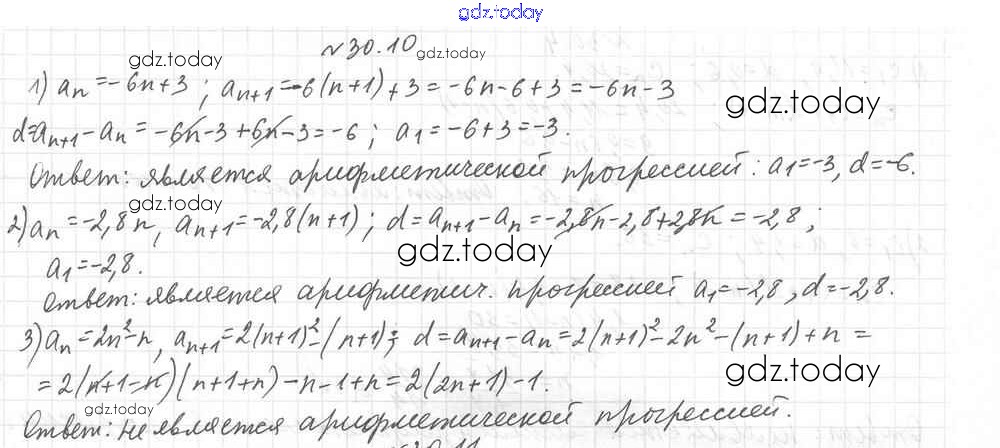 gdz.today
№30.10 gdz.today
gdz.today
1) aₙ=-6n+3; aₙ₊₁=-6(n+1)+3=-6n-6+3=-6n-3
gdz.today
d=aₙ₊₁-aₙ=-6n-3+6n-3=-6; a₁=-6+3=-3.
Ответ: является арифметической прогрессией: a₁=-3, d=-6.
gdz.today
2) aₙ=-2,8n, aₙ₊₁=-2,8(n+1); d=aₙ₊₁-aₙ=-2,8n-2,8+2,8n=-2,8;
gdz.today
a₁=-2,8.
Ответ: является арифметич. прогрессией a₁=-2,8, d=-2,8.
3) aₙ=2n²-n, aₙ₊₁=2(n+1)²-(n+1); d=aₙ₊₁-aₙ=2(n+1)²-2n²-(n+1)+n=
=2(n+1-n)(n+1+n)-n-1+n=2(2n+1)-1.
gdz.today
gdz.today
Ответ: не является арифметической прогрессией.
№30.11